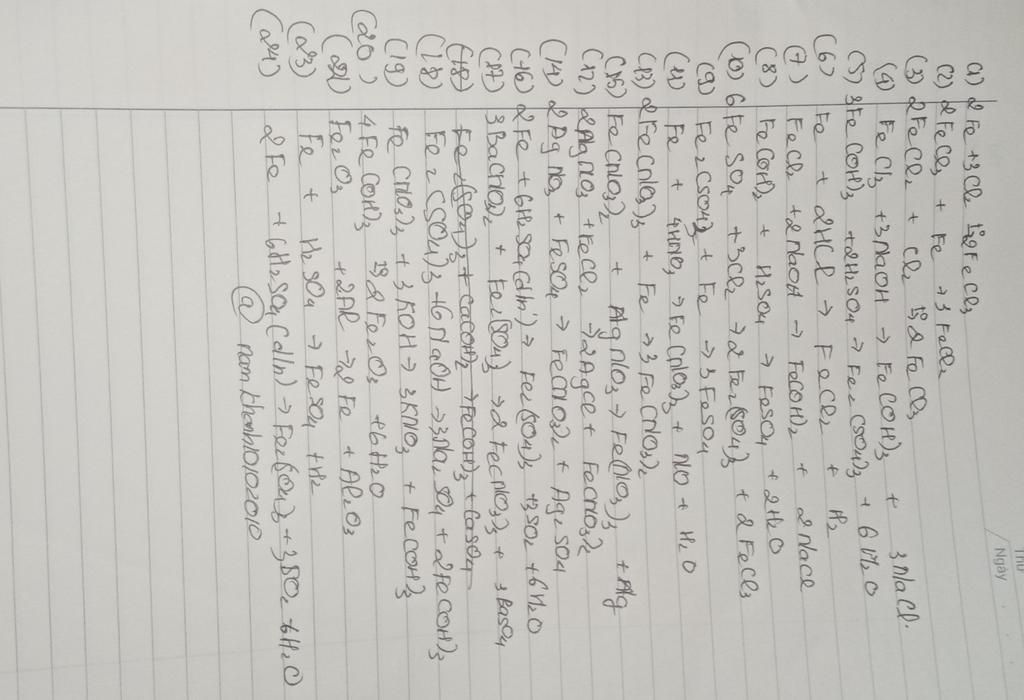 Thứ
Ngày
(1) 2Fe + 3Cl2 t°→ 2FeCl3
(2) 2FeCl3 + Fe → 3FeCl2
(3) 2FeCl2 + Cl2 t°→ 2FeCl3
(4) FeCl3 + 3NaOH → Fe(OH)3 + 3NaCl.
(5) 3Fe(OH)3 + 2H2SO4 → Fe2(SO4)3 + 6H2O
(6) Fe + 2HCl → FeCl2 + H2
(7) FeCl2 + 2NaOH → Fe(OH)2 + 2NaCl
(8) Fe(OH)2 + H2SO4 → FeSO4 + 2H2O
(10) 6FeSO4 + 3Cl2 → 2Fe2(SO4)3 + 2FeCl3
(9) Fe2(SO4)3 + Fe → 3FeSO4
(11) Fe + 4HNO3 → Fe(NO3)3 + NO + H2O
(13) 2Fe(NO3)3 + Fe → 3Fe(NO3)2
(15) Fe(NO3)2 + AgNO3 → Fe(NO3)3 + Ag
(12) 2AgNO3 + FeCl2 → 2AgCl + Fe(NO3)2
(14) 2AgNO3 + FeSO4 → Fe(NO3)2 + Ag2SO4
(16) 2Fe + 6H2SO4(đ/n) → Fe2(SO4)3 + 3SO2 + 6H2O
(17) 3Ba(NO3)2 + Fe2(SO4)3 → 2Fe(NO3)3 + 3BaSO4
(18) Fe2(SO4)3 + Ca(OH)2 → Fe(OH)3 + CaSO4
(18) Fe2(SO4)3 + 6NaOH → 3Na2SO4 + 2Fe(OH)3
(19) Fe(NO3)3 + 3KOH → 3KNO3 + Fe(OH)3
(20) 4Fe(OH)3 t°→ 2Fe2O3 + 6H2O
(21) Fe2O3 + 2Al → 2Fe + Al2O3
(23) Fe + H2SO4 → FeSO4 + H2
(24) 2Fe + 6H2SO4(đ/n) → Fe2(SO4)3 + 3SO2 + 6H2O
@ namkhanh01012010